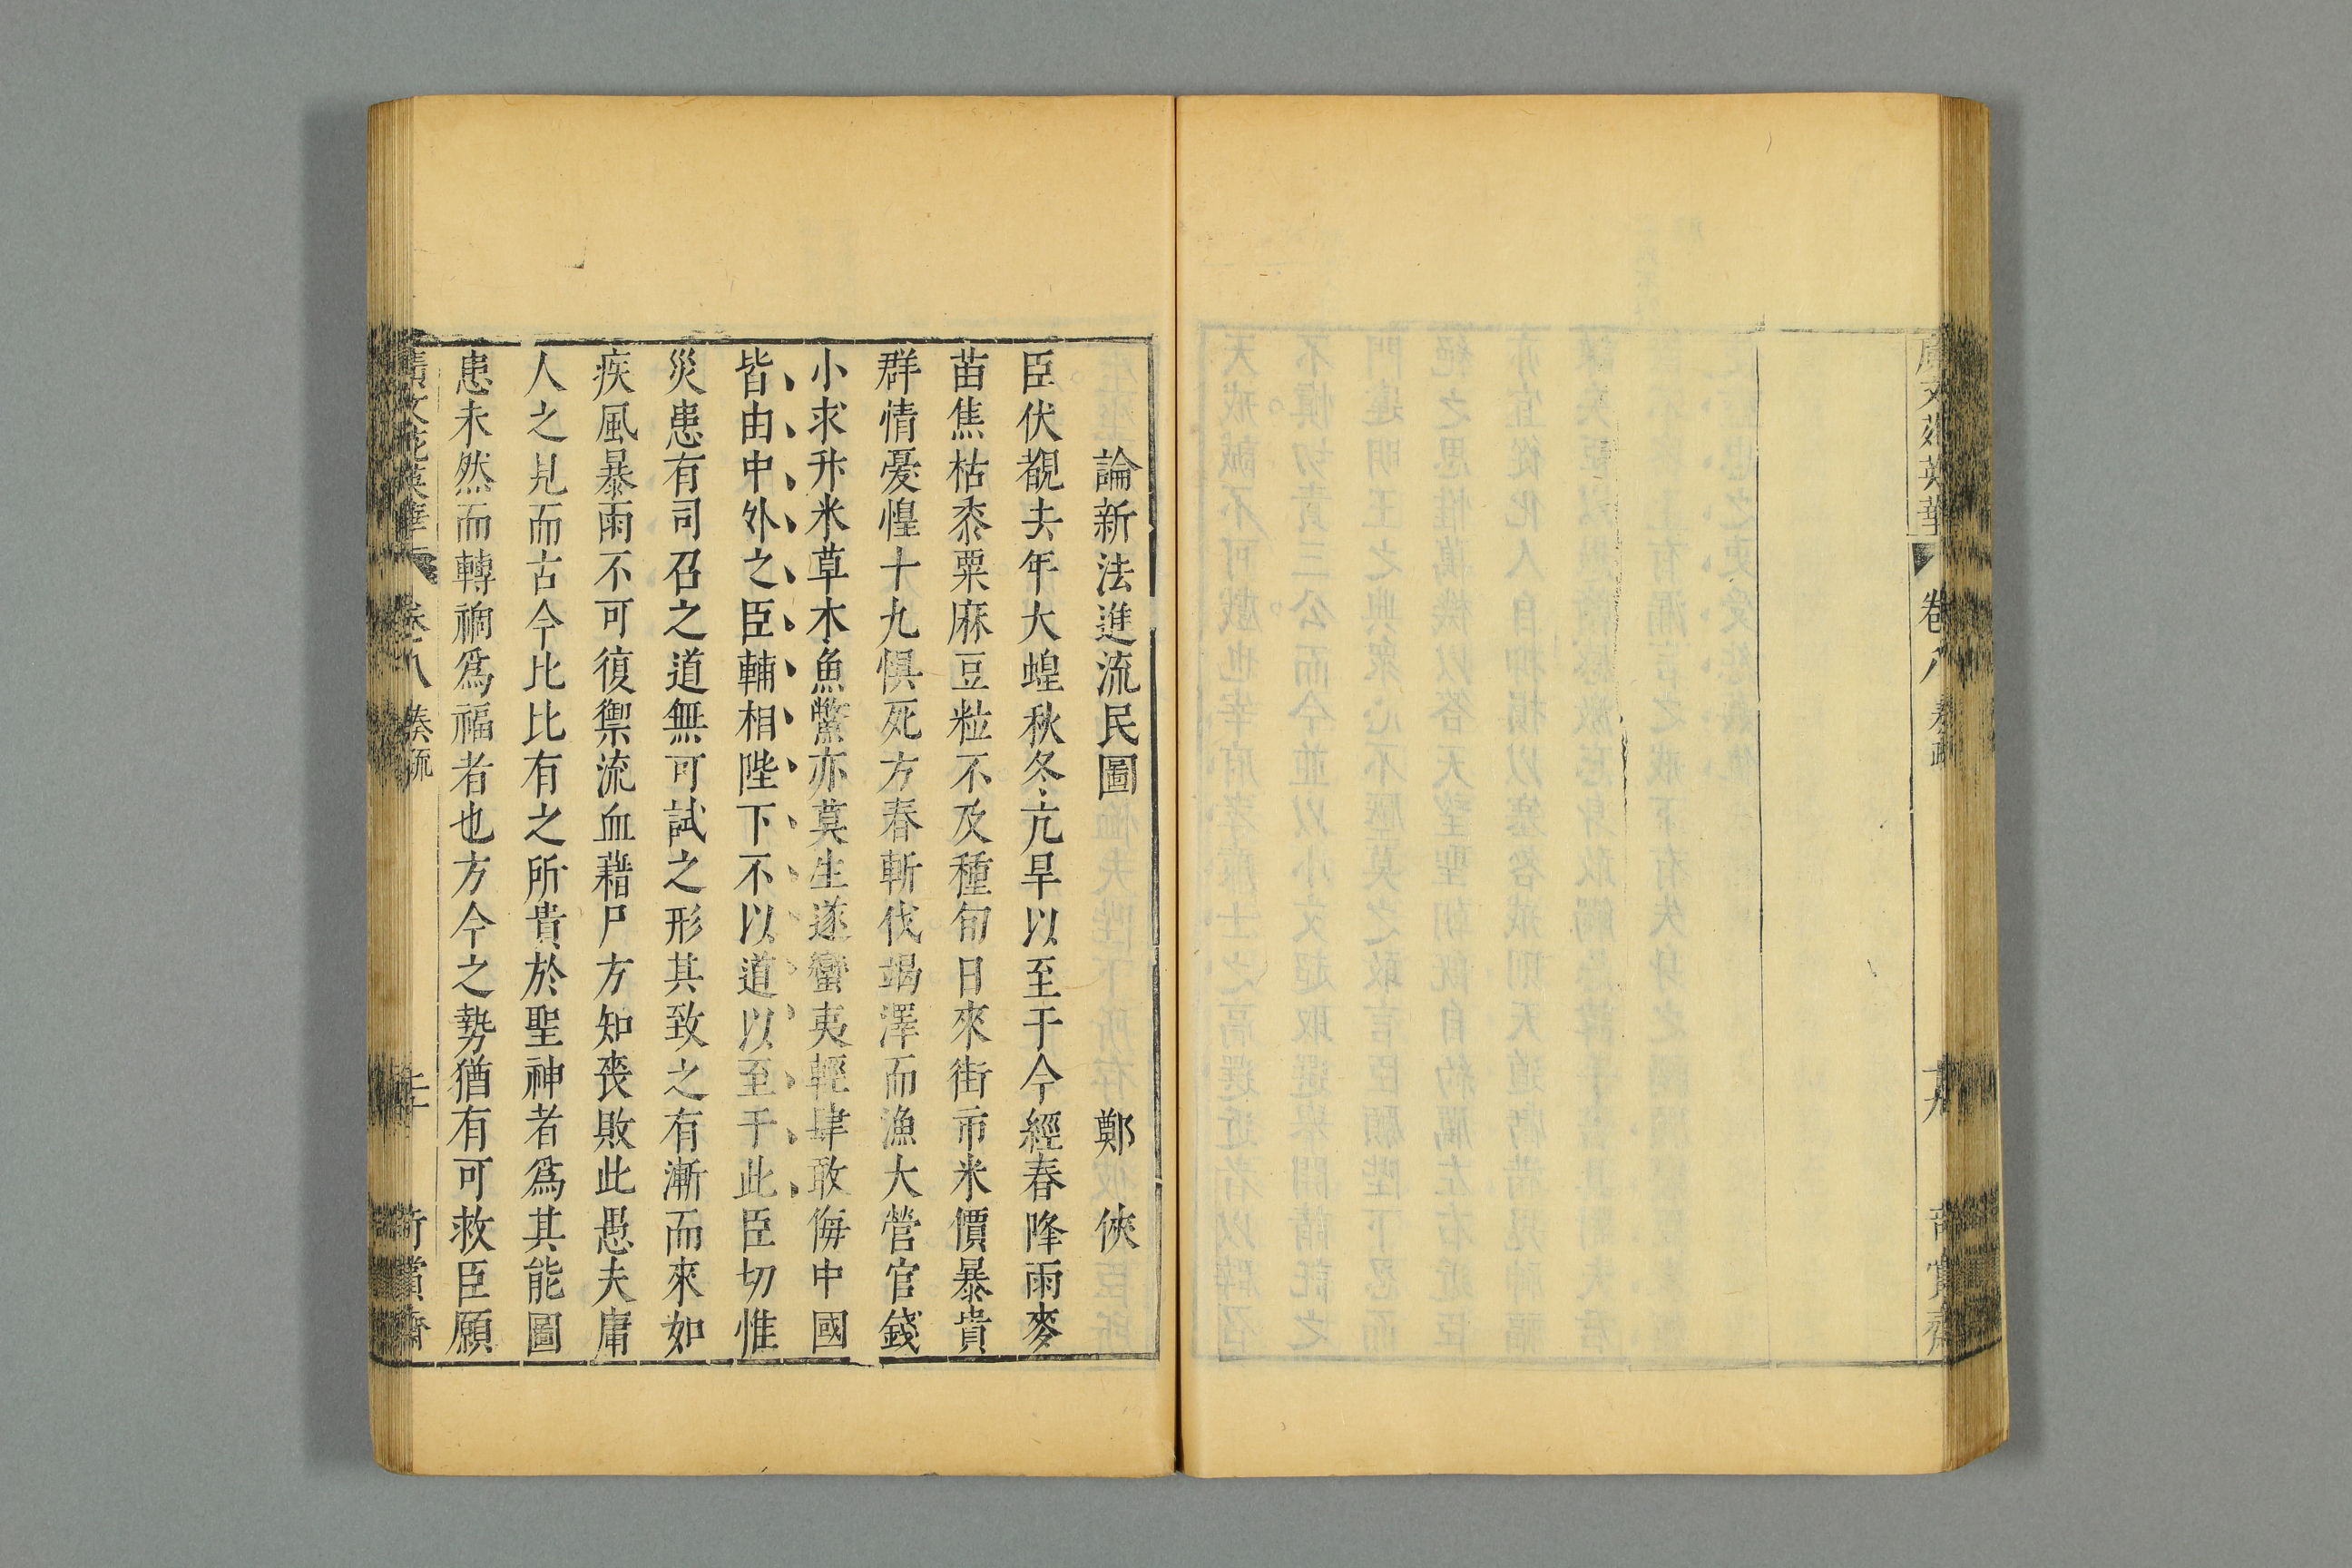 廣文苑英華 卷八 奏疏 十九
論新法進流民圖 鄭俠
臣伏覩去年大蝗秋冬亢旱以至于今經春降雨麥
苗焦枯黍粟麻豆粒不及種旬日來街市米價暴貴
群情憂惶十九懼死方春斬伐竭澤而漁大營官錢
小求升米草木魚鱉亦莫生遂蠻夷輕肆敢侮中國
皆由中外之臣輔相陛下不以道以至于此臣切惟
災患有司召之道無可試之形其致之有漸而來如
疾風暴雨不可復禦流血藉尸方知喪敗此愚夫庸
人之見而古今比比有之所貴於聖神者爲其能圖
患未然而轉禍爲福者也方今之勢猶有可救臣願
廣文苑英華 卷八 奏疏 二十